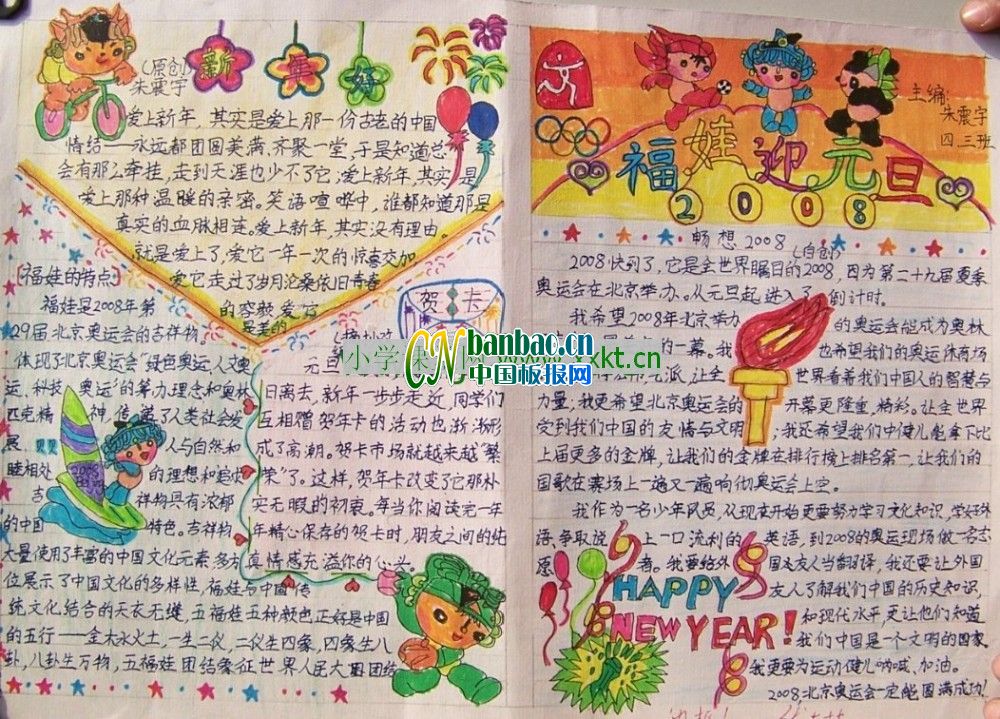 新年好
(原创)
朱震宇
爱上新年，其实是爱上那一份古老的中国
情结——永远都团圆美满、齐聚一堂，于是知道总
会有那么牵挂，走到天涯也少不了它；爱上新年，其实是
爱上那种温暖的亲密。笑语喧哗中，谁都知道那是
真实的血脉相连。爱上新年，其实没有理由。
就是爱上了，爱它一年一次的惊喜交加
爱它走过了岁月沧桑依旧青春
的容颜爱它
是美的
[福娃的特点]
福娃是2008年第
29届北京奥运会的吉祥物
体现了北京奥运会“绿色奥运、人文奥
运、科技奥运”的筹办理念和奥林
匹克精神，传递了人类社会发
展
人与自然和
睦相处的理想和意愿
吉祥物具有浓郁
的中国特色。吉祥物
大量使用了丰富的中国文化元素，多方
位展示了中国文化的多样性，福娃与中国传
统文化结合的天衣无缝，五福娃五种颜色正好是中国
的五行——金木水火土，一生二仪，二仪生四象，四象生八
卦，八卦生万物，五福娃团结象征世界人民大团结
贺卡
元旦
日离去，新年一步步走近，同学们
互相赠贺年卡的活动也渐渐形
成了高潮。贺卡市场就越来越“繁
荣”了。这样，贺年卡改变了它那朴
实无暇的初衷。每当你阅读完一年
年精心保存的贺卡时，朋友之间的纯
真情感充溢你的心头。
主编：
朱震宇
四、三班
福娃迎元旦
2008
畅想2008
(自创)
2008快到了，它是全世界瞩目的2008，因为第二十九届夏季
奥运会在北京举办。从元旦起，进入了倒计时。
我希望2008年北京举办的奥运会能成为奥林
的一幕。我也希望我们的奥运体育场
派，让全世界看着我们中国人的智慧与
力量，我更希望北京奥运会的开幕更隆重，精彩。让全世界
受到我们中国的友情与文明，我还希望我们中健儿能拿下比
上届更多的金牌，让我们的金牌在排行榜上排名第一，让我们的
国歌在赛场上一遍又一遍响彻奥运会上空。
我作为一名少年队员，从现在开始更要努力学习文化知识，学好外
语，争取说上一口流利的英语，到2008的奥运现场做一名志
愿者。我要给外国友人当翻译，我还要让外国
友人了解我们中国的历史知识，
和现代水平，更让他们知道
我们中国是一个文明的国家。
我更要为运动健儿呐喊、加油。
2008北京奥运会一定能圆满成功！
HAPPY
NEW YEAR!
2008
CN banbao.cn
中国板报网
小学
xxkt.cn